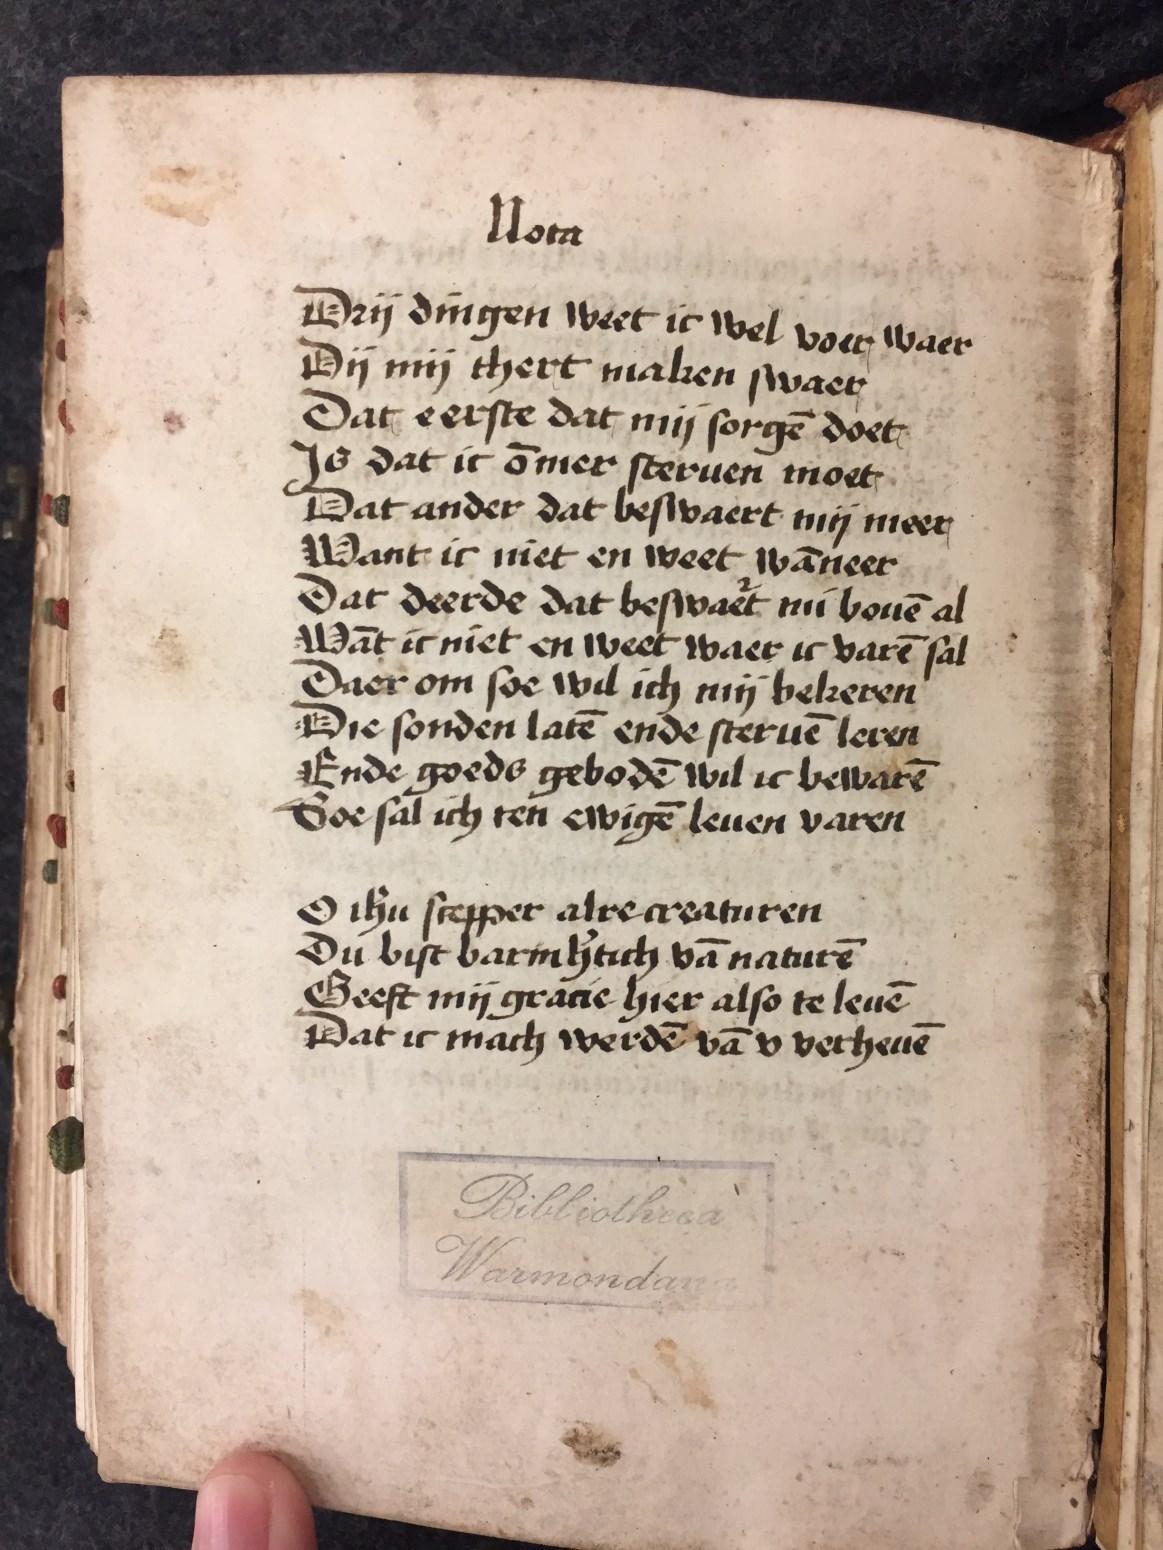 Nota
Drij dingen weet ic wel voer waer
Dij mij thert maken swaer
Dat eerste dat mij sorgē doet
Is dat ic ōmer steruen moet
Dat ander dat beswaert mij meer
Want ic niet en weet wāneer
Dat deerde dat beswaert mi bouē al
Wāt ic niet en weet waer ic varē sal
Daer om soe wil ich mij bekeren
Die sonden latē ende steruē leren
Ende goeds gebodē wil ic bewarē
Soe sal ich ten ewigē leuen varen
O ihu scepper alre creaturen
Du bist barmhtich vā naturē
Geeft mij gracie hier also te leuē
Dat ic mach werdē vā v verheuē
Bibliotheca
Warmondana